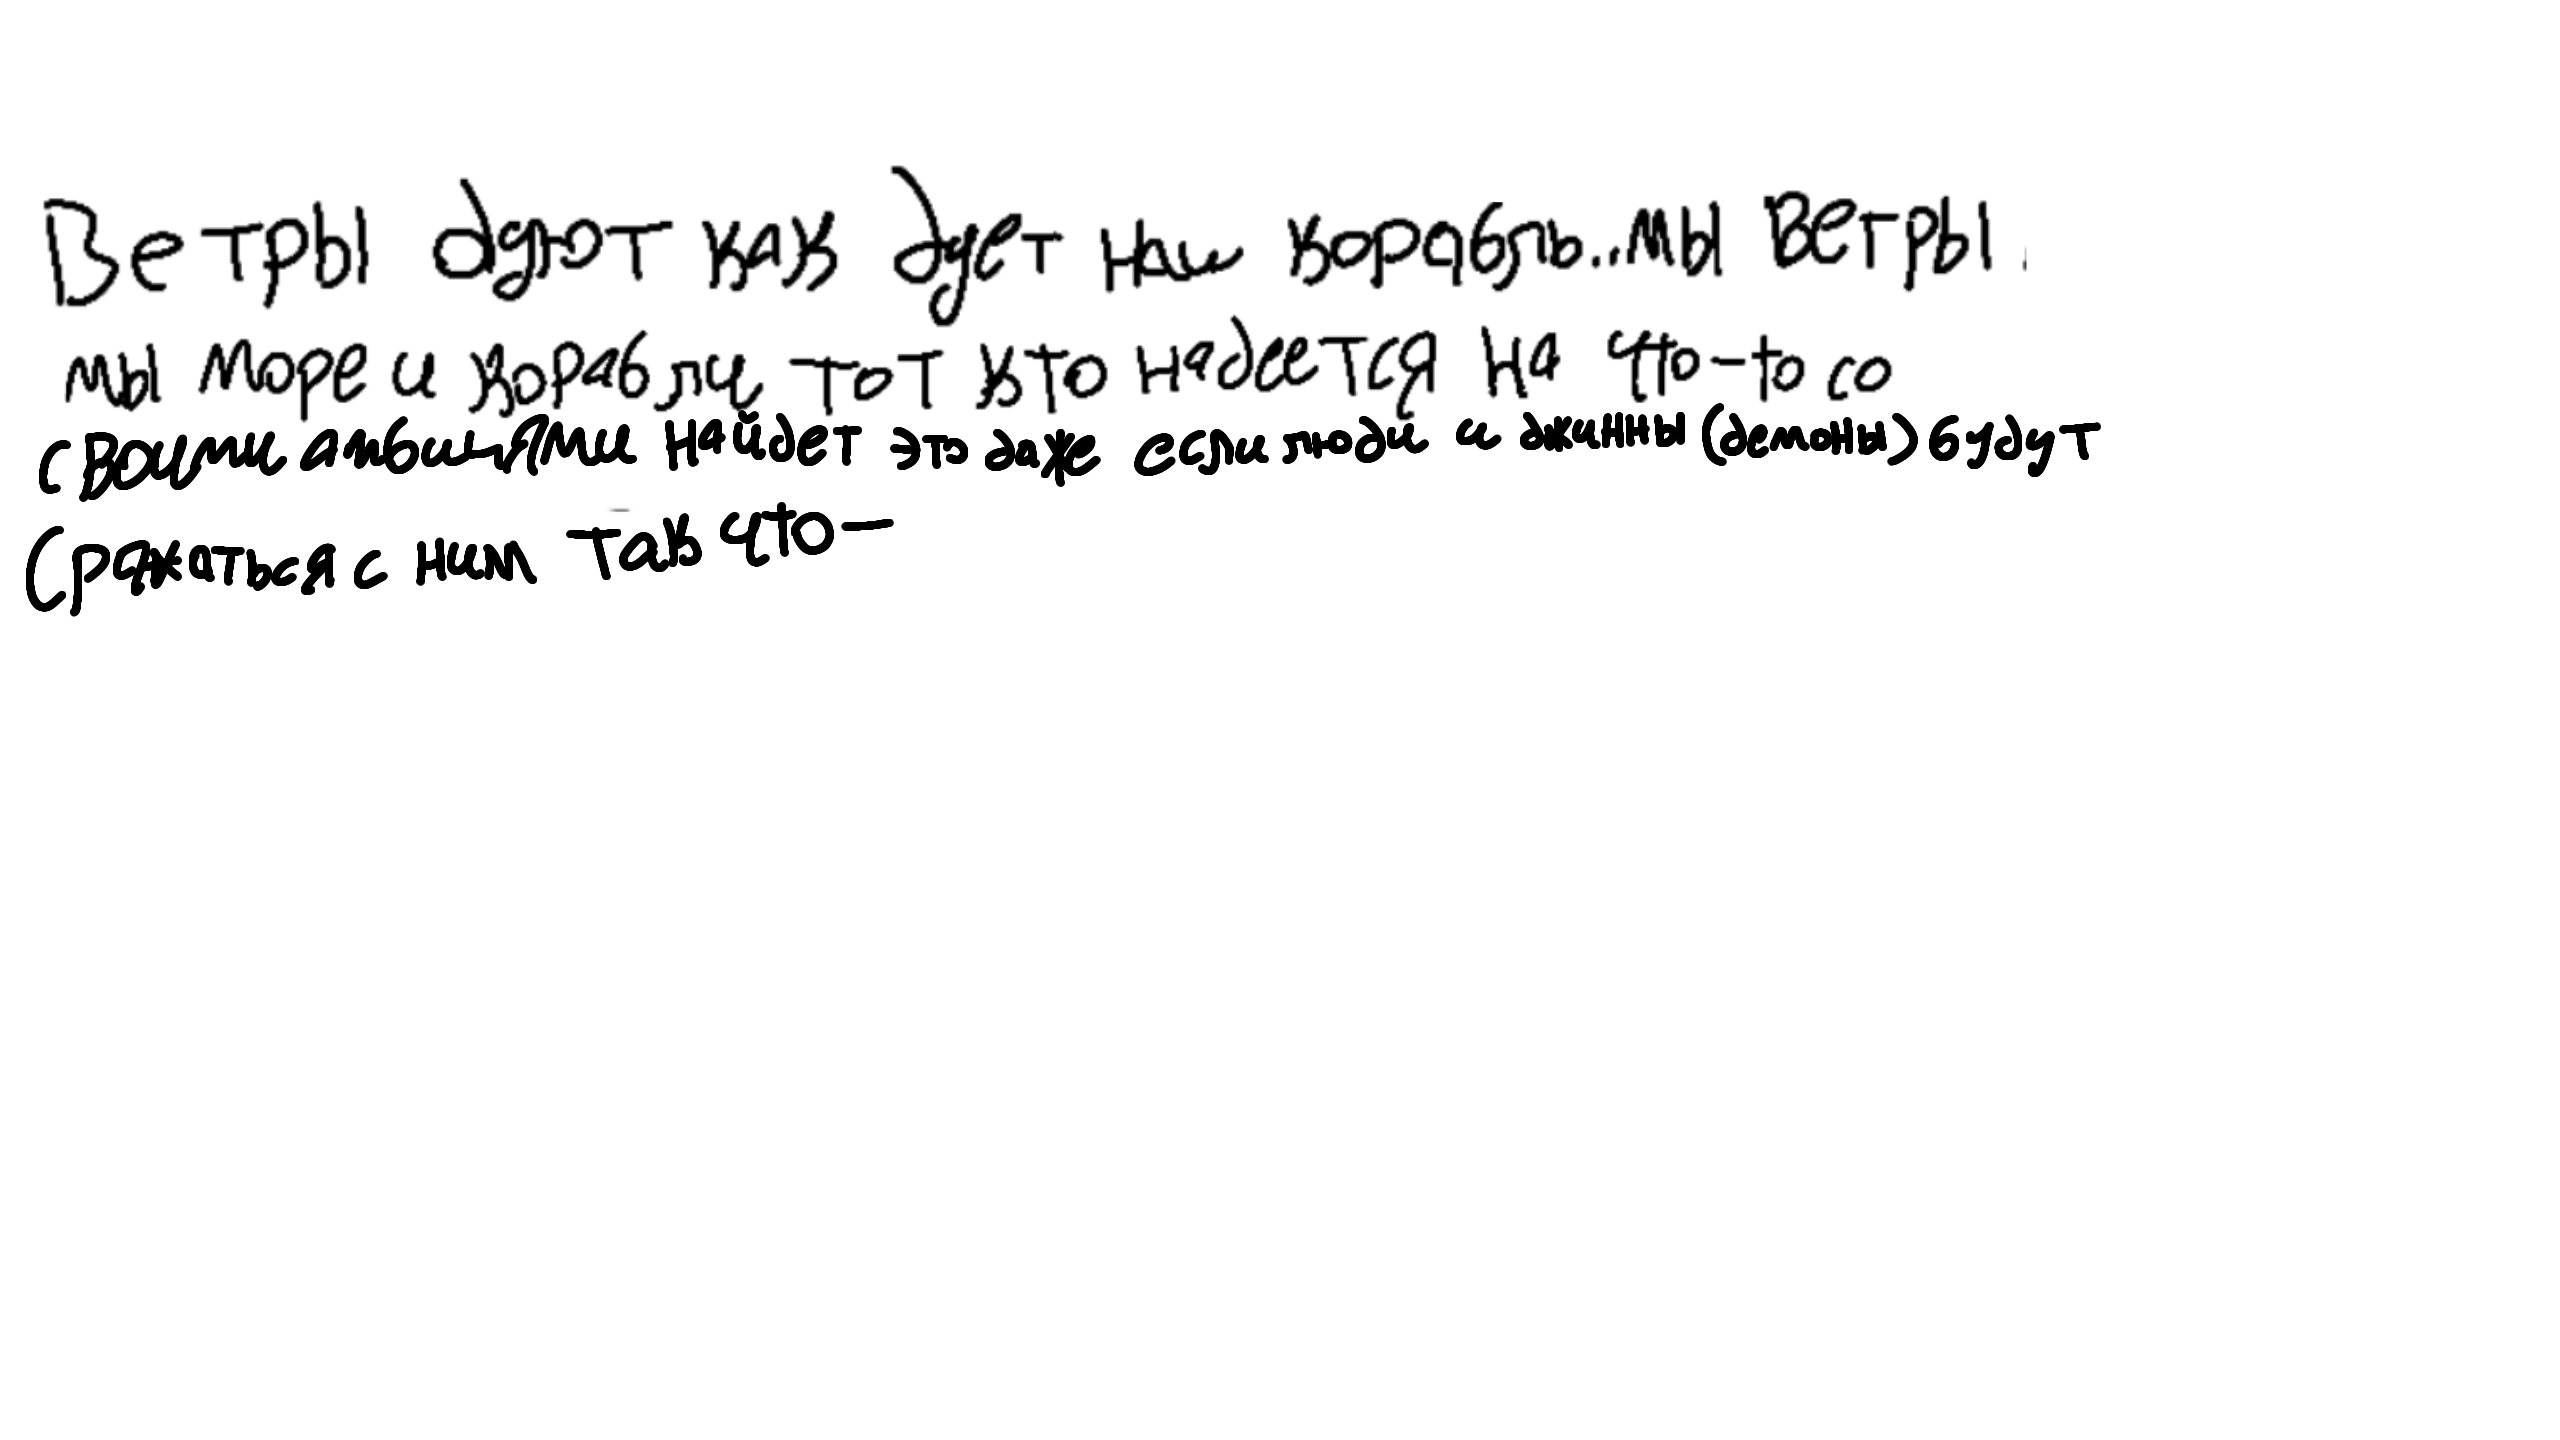 Ветры дуют как дует наш корабль...мы ветры.
мы море и корабли тот кто надеется на что-то со
своими амбициями найдет это даже если люди и джинны (демоны) будут
Сражаться с ним так что-